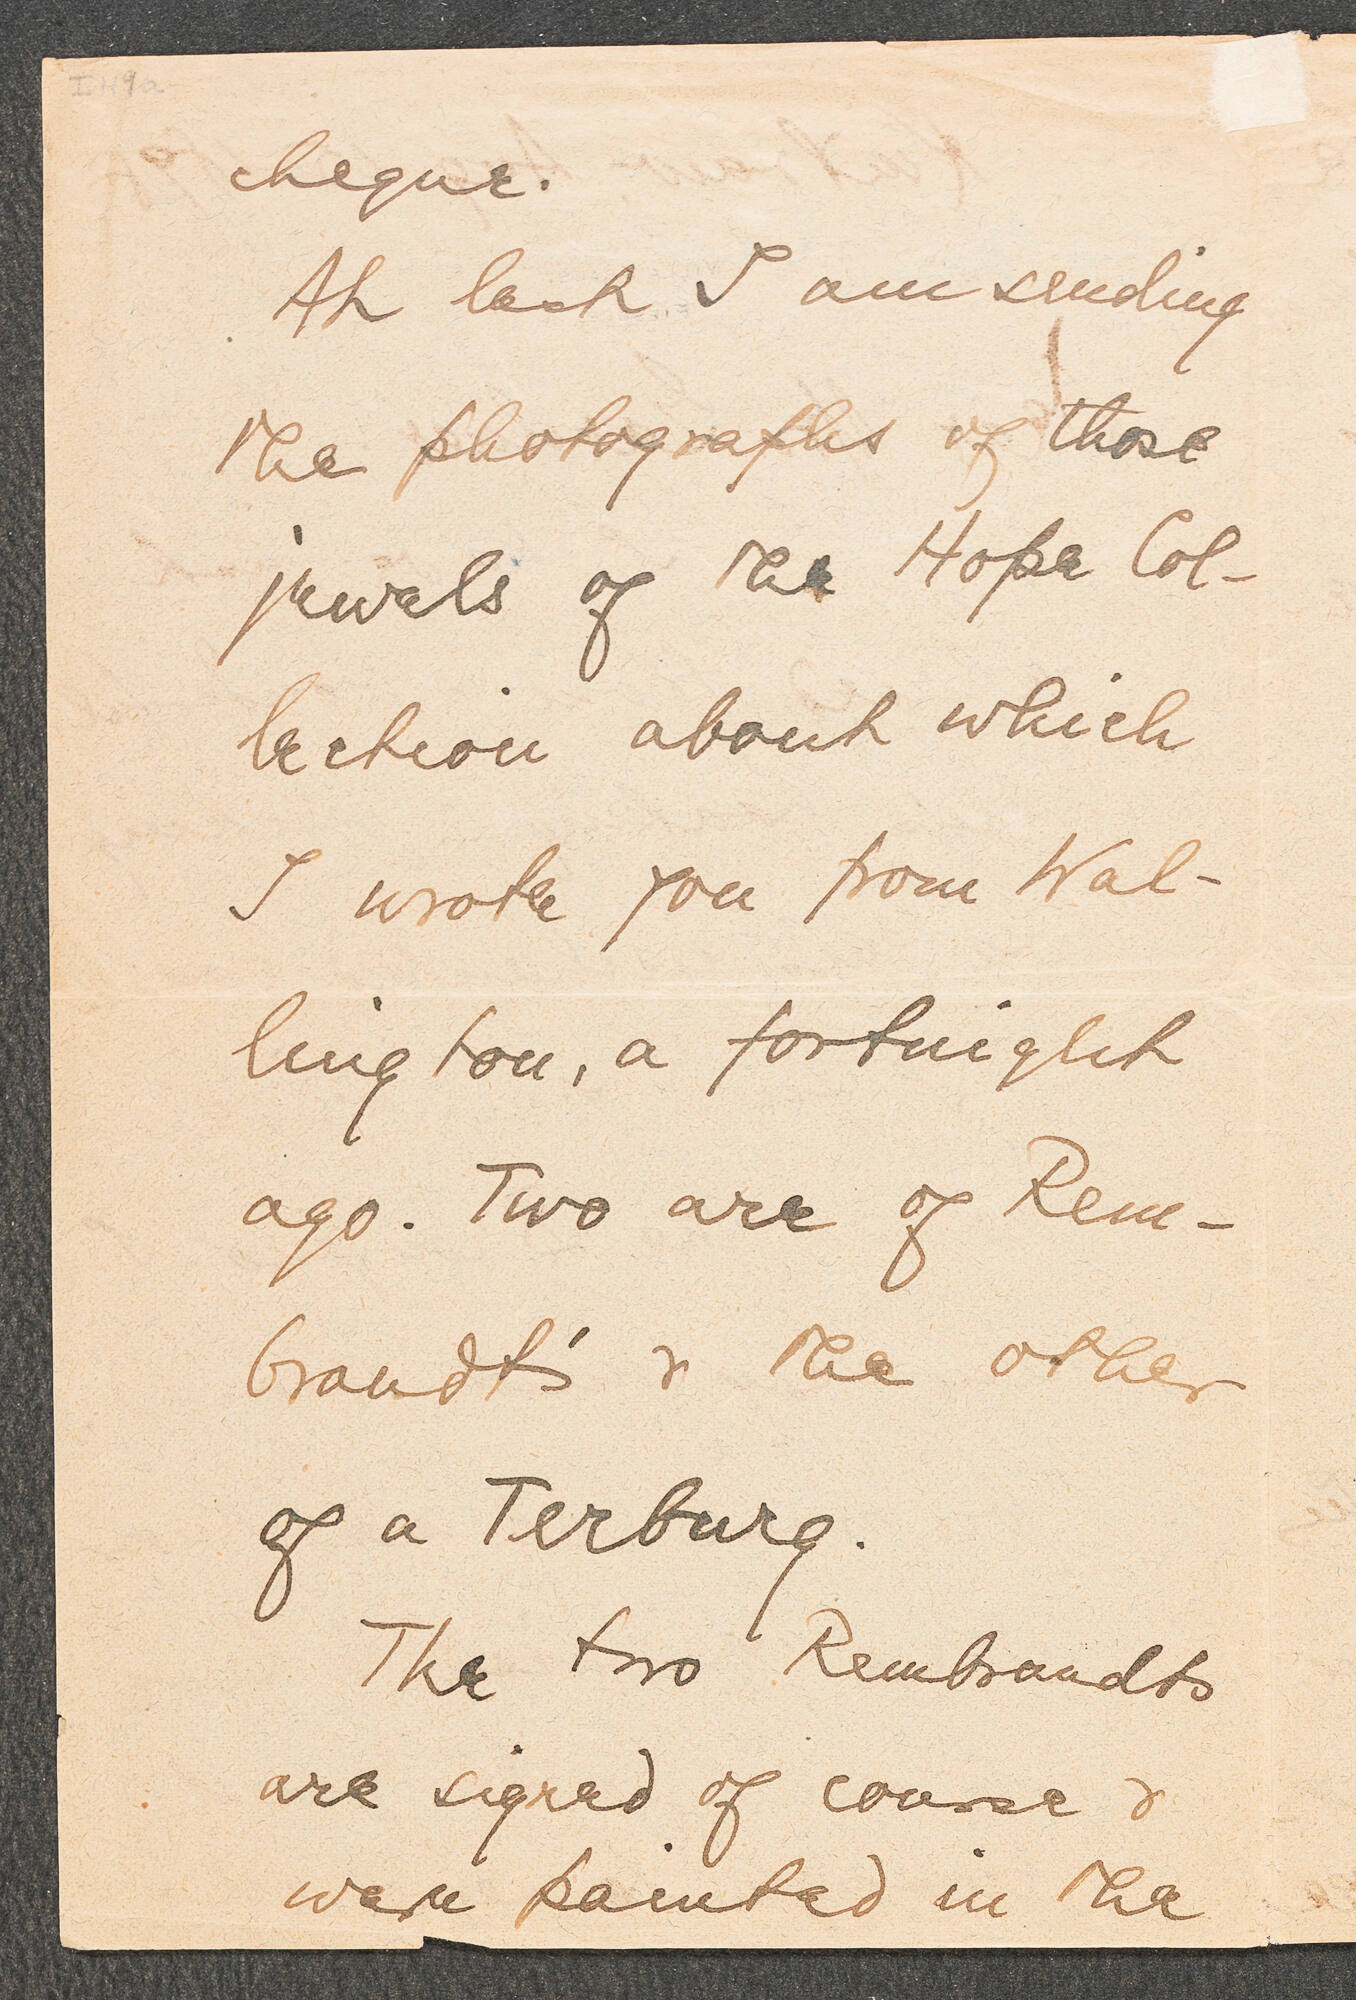 cheque.
At last I am sending
the photographs of those
jewels of the Hope Col-
lection about which
I wrote you from Wal-
lington, a fortnight
ago. Two are of Rem-
brandt's & the other
of a Terburg.
The two Rembrandts
are signed of course &
were painted in the